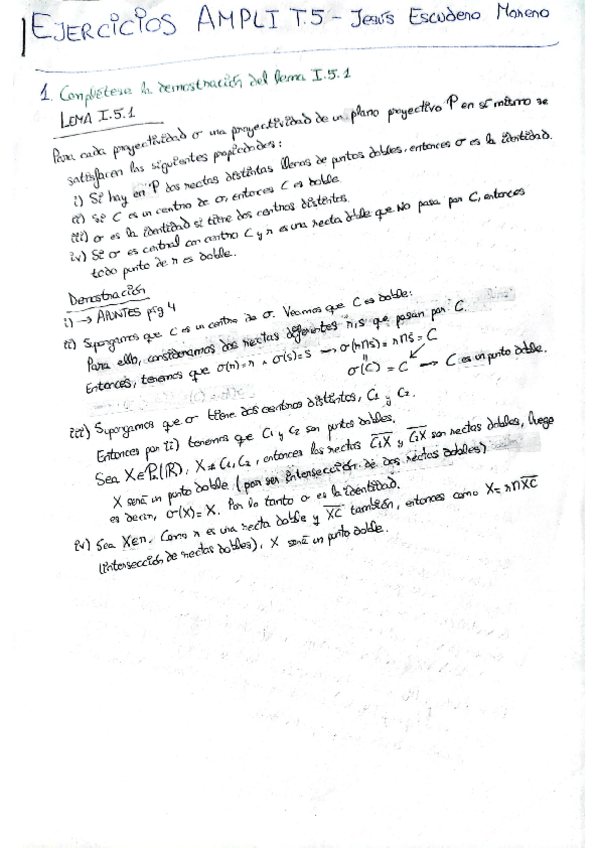 EJERCICIOS AMPLI T.5 - Jesús Escudero Moreno
1. Complétese la demostración del lema I.5.1
LEMA I.5.1
Para cada proyectividad σ una proyectividad de un plano proyectivo P en sí mismo se
satisfacen las siguientes propiedades:
i) Si hay en P dos rectas distintas llenas de puntos dobles, entonces σ es la identidad.
ii) Si C es un centro de σ, entonces C es doble
iii) σ es la identidad si tiene dos centros distintos.
iv) Si σ es central con centro C y r es una recta doble que NO pasa por C, entonces
todo punto de r es doble.
Demostración
i) → APUNTES pág 4
ii) Supongamos que C es un centro de σ. Veamos que C es doble:
Para ello, consideramos dos rectas diferentes r,s que pasan por C.
Entonces, tenemos que σ(r)=r ∧ σ(s)=s → σ(r∩s) = r∩s = C
σ(C) = C → C es un punto doble.
iii) Supongamos que σ tiene dos centros distintos, C₁ y C₂.
Entonces por ii) tenemos que C₁ y C₂ son puntos dobles.
Sea X∈P₂(ℝ), X≠C₁,C₂, entonces las rectas C₁X y C₂X son rectas dobles, luego
X será un punto doble (por ser intersección de dos rectas dobles)
es decir, σ(X)=X. Por lo tanto σ es la identidad.
iv) Sea X∈r. Como r es una recta doble y XC también, entonces como X=r∩XC
(intersección de rectas dobles), X será un punto doble.